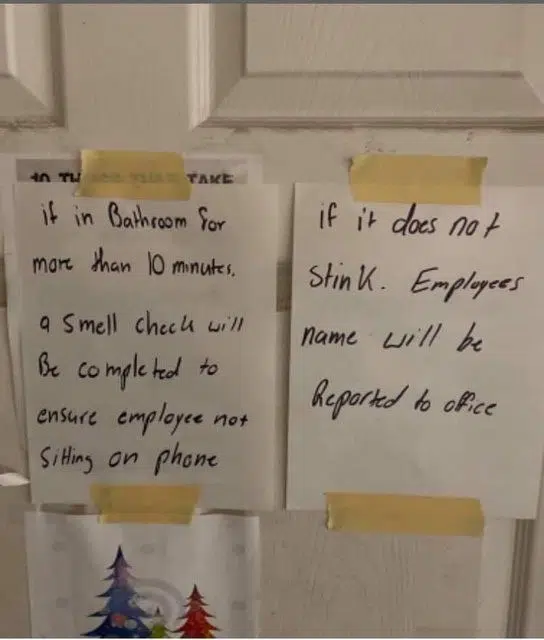 10 TH TAKE
if in Bathroom for
more than 10 minutes.
a smell check will
Be completed to
ensure employee not
Sitting on phone
if it does not
Stink. Employees
name will be
Reported to office